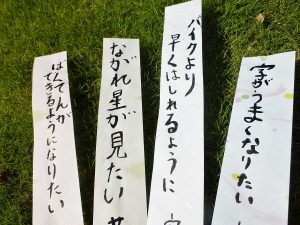 字がうまくなりたい
バイクより
早くはしれるように
ながれ星が見たい
ばんてんが
できるようになりたい